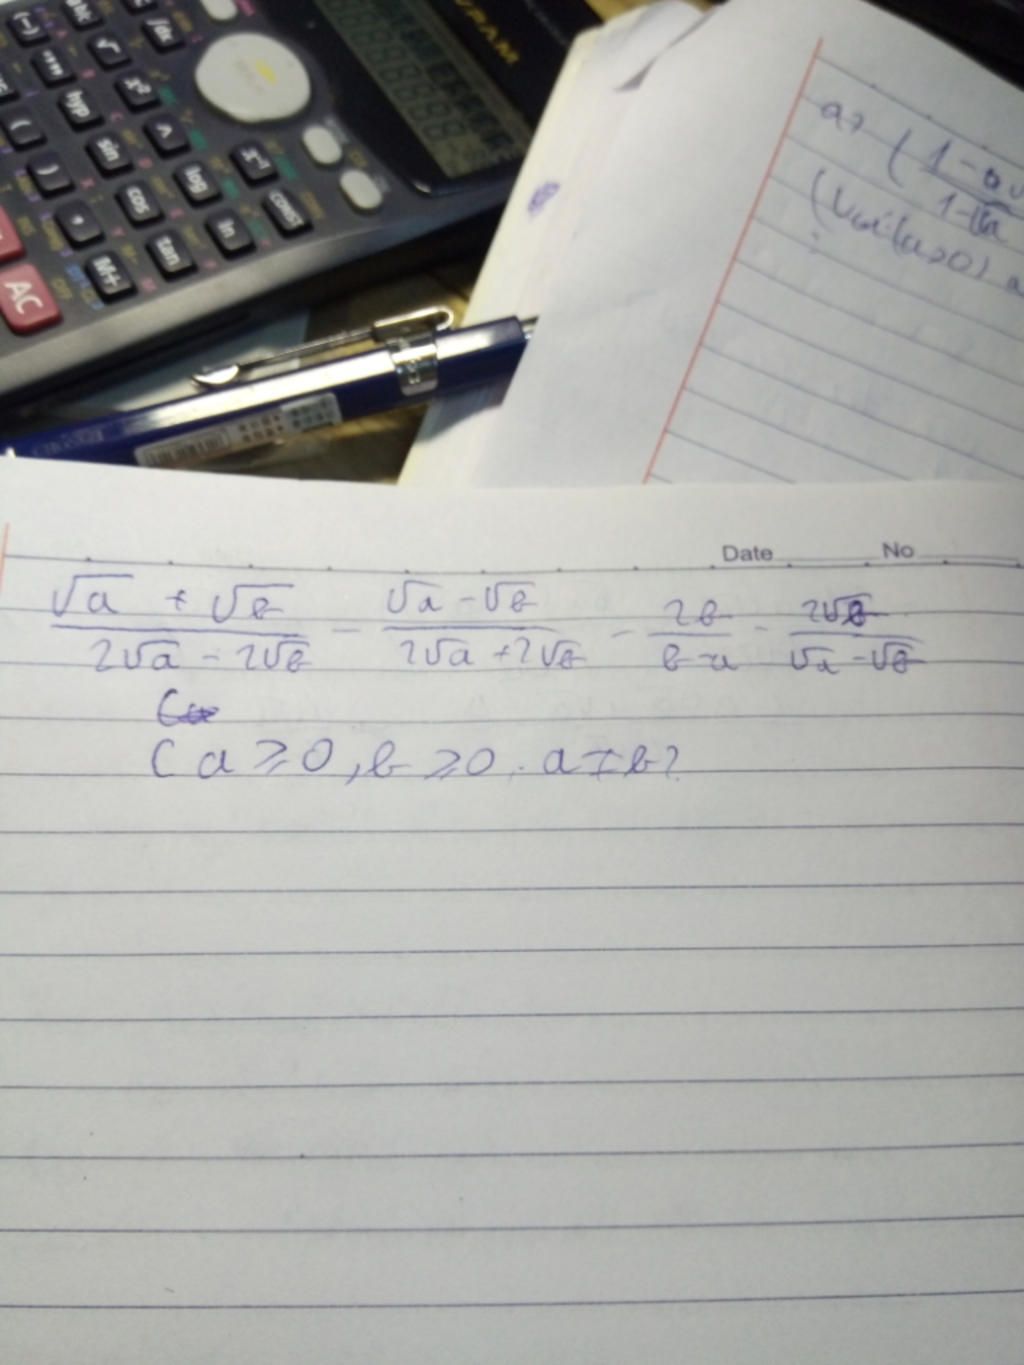 (-)
hyp
sin
cos
tan
log
ln
x²
^
x⁻¹
CONST
(
)
,
M+
AC
a> (1-a√
1-√a
(với (a≥0) a
Date No
√a + √b / 2√a - 2√b - √a - √b / 2√a + 2√b - 2b / b - a - 2√b / √a - √b
(a ≥ 0, b ≥ 0. a ≠ b)